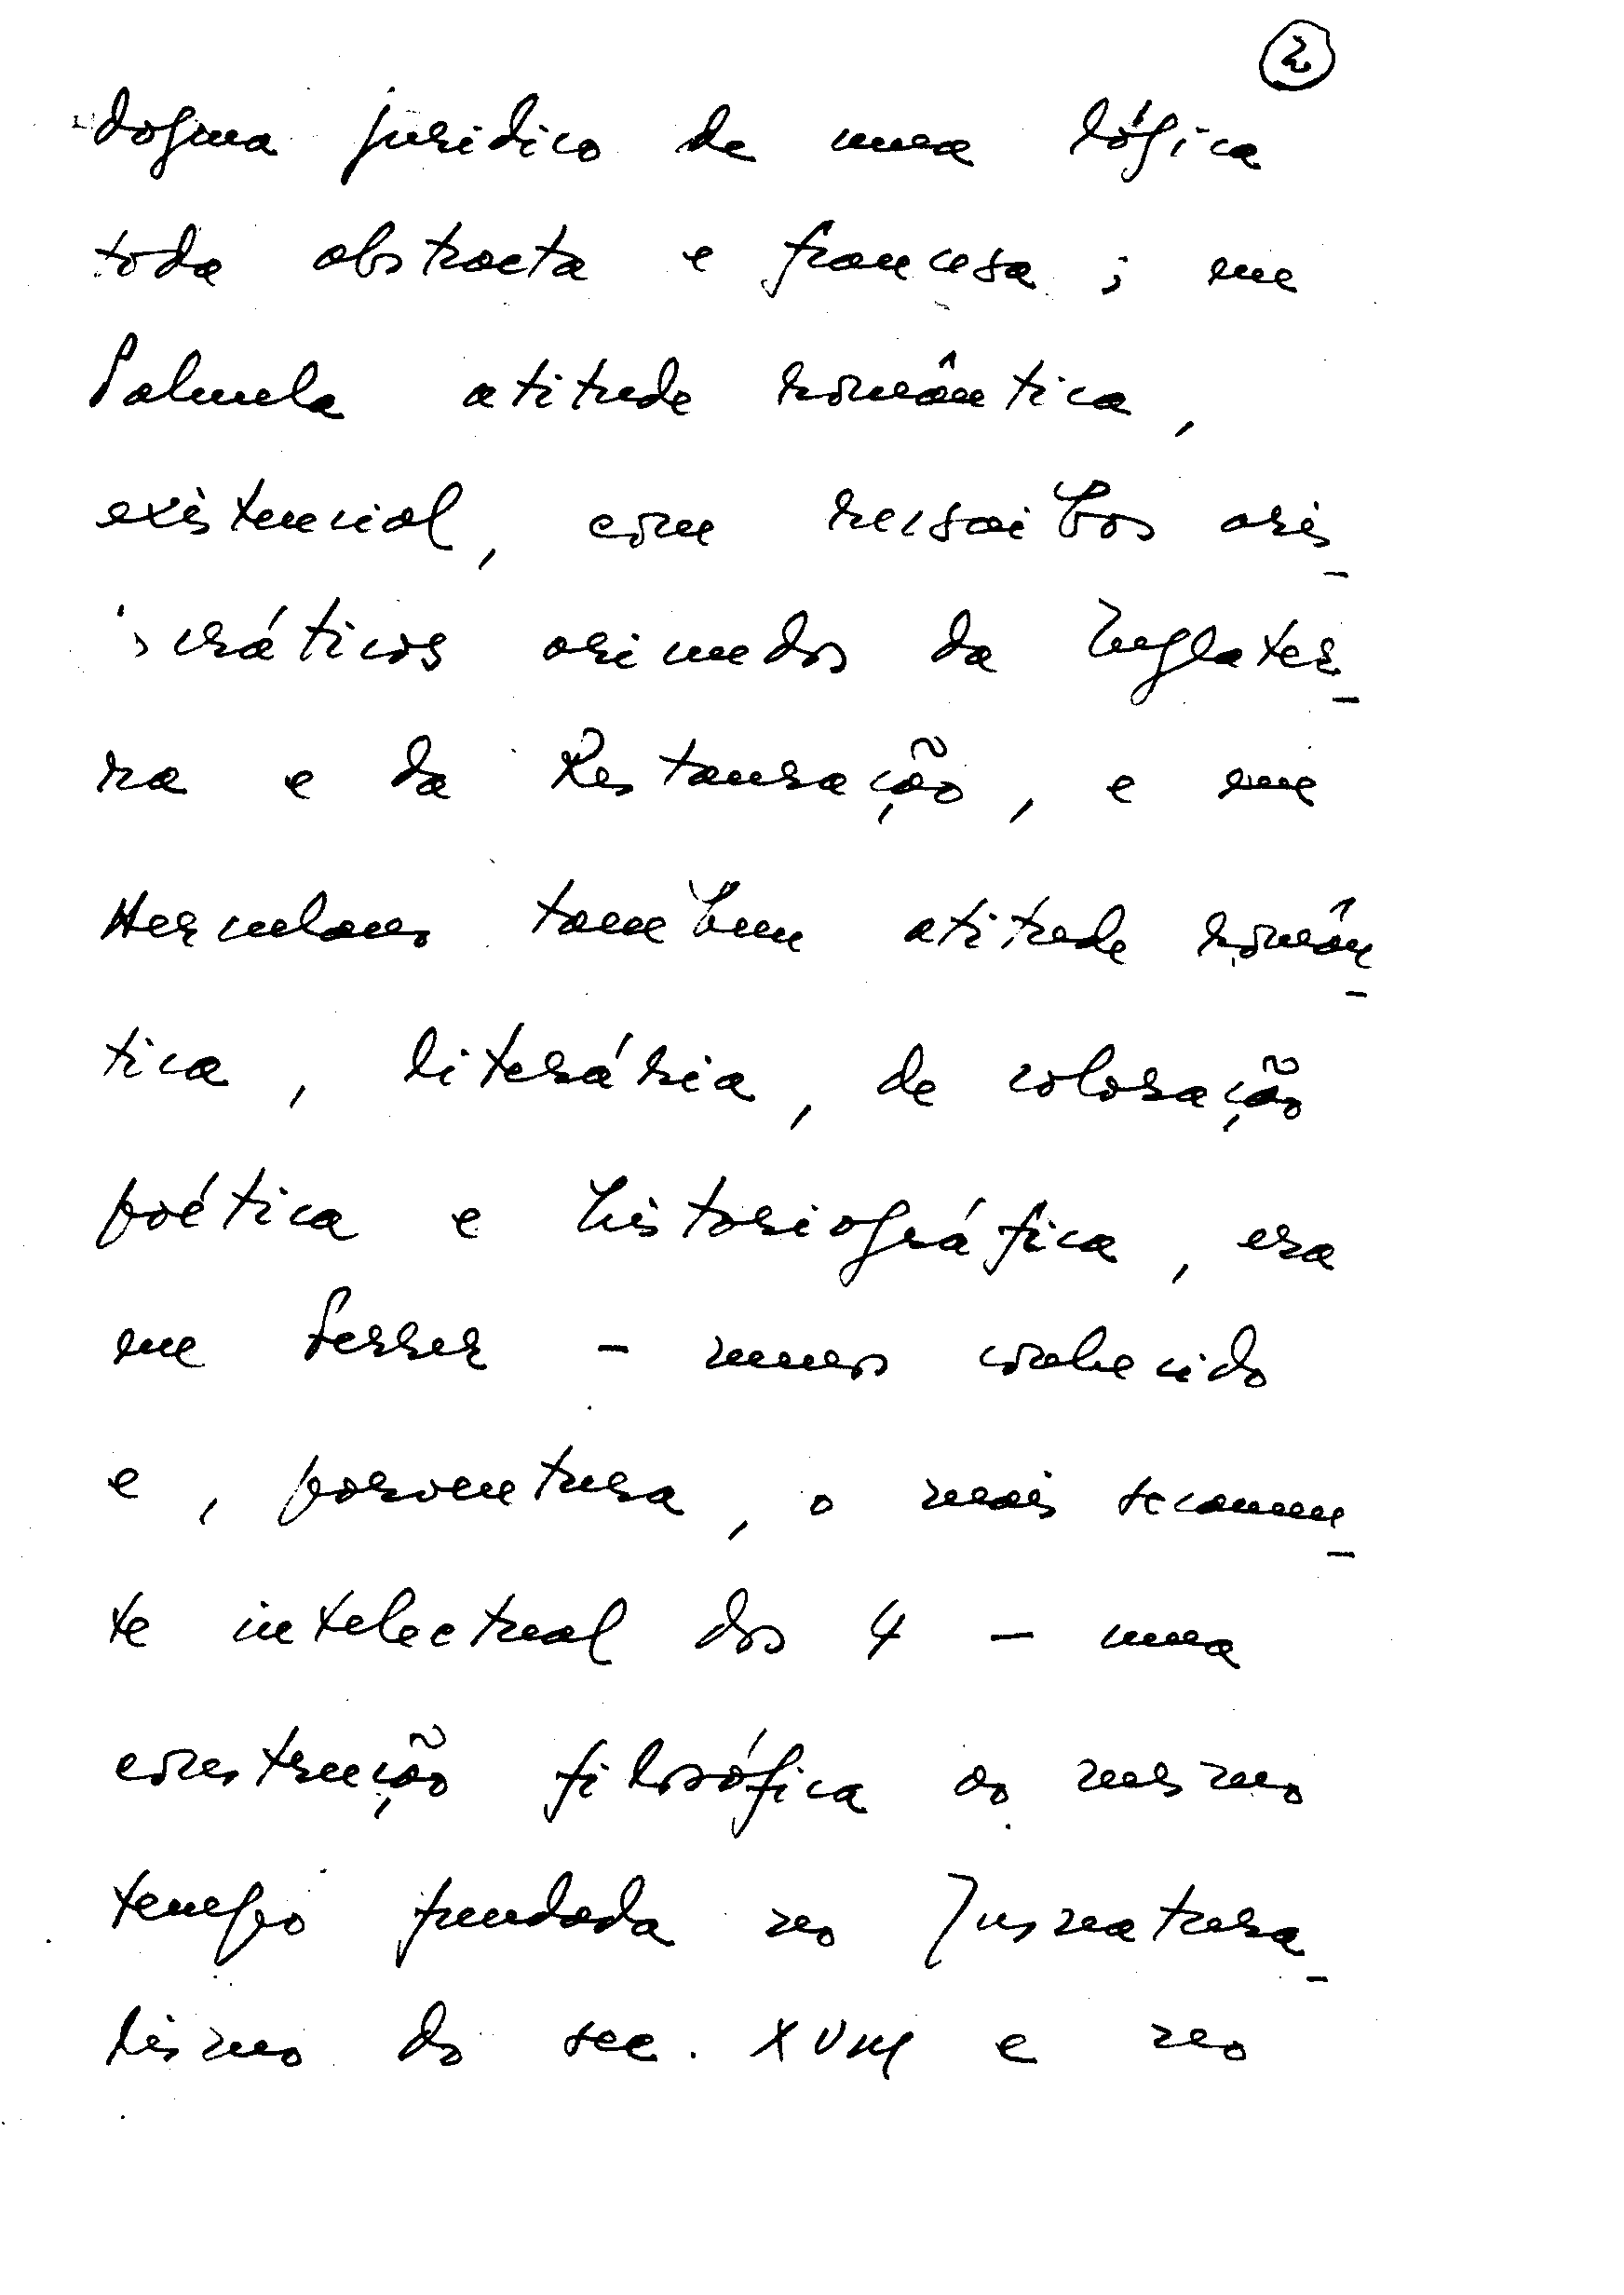 2
dogma juridico de uma lógica
toda abstracta e francesa; em
Palmela atitude romântica,
existencial, com ressaibos aris-
cráticos oriundos da Inglater-
ra e da Restauração, e em
Herculano também atitude român-
tica, literária, de coloração
poética e historiográfica, era
em Ferrer - menos conhecido
e, porventura, o mais secamen-
te intelectual dos 4 - uma
construção filosófica ao mesmo
tempo fundada no Jusnatura-
lismo do sec. XVIII e no